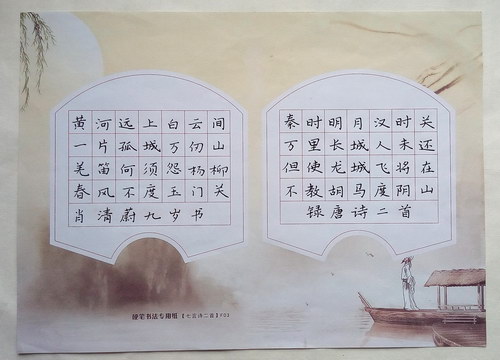 黄河远上白云间
一片孤城万仞山
羌笛何须怨杨柳
春风不度玉门关
肖清蔚九岁书
秦时明月汉时关
万里长城人未还
但使龙城飞将在
不教胡马度阴山
录唐诗二首
硬笔书法专用纸【七言诗二首】Y03